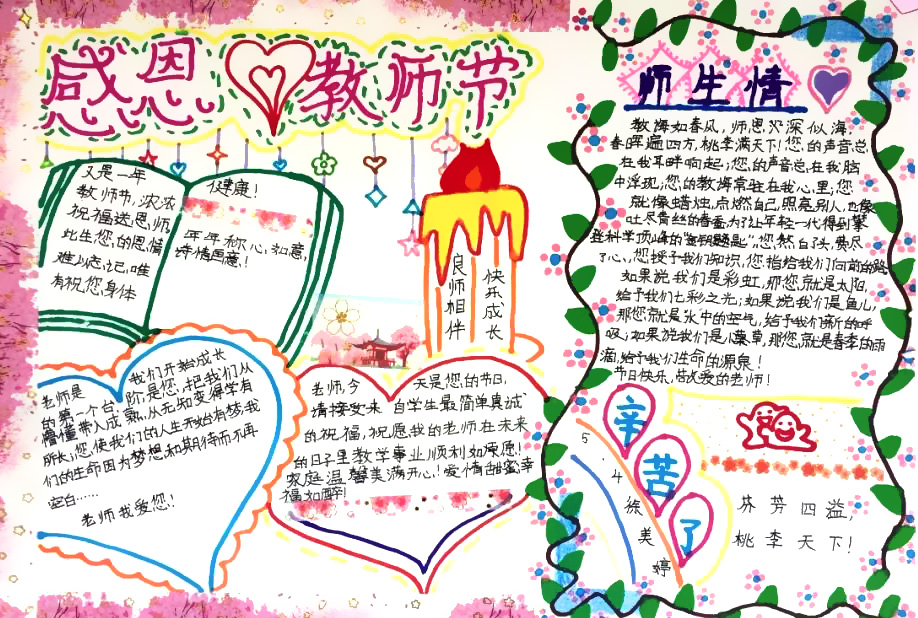 感恩教师节
又是一年
教师节，浓浓
祝福送恩师，
此生您的恩情
难以忘记，唯
有祝您身体
健康！
年年称心，如意，
诗情画意！
良师相伴
快乐成长
老师是我们开始成长
的第一个台阶，是您，把我们从
懵懂带入成熟，从无知变得学有
所长，您使我们的人生开始有梦，我
们的生命因为梦想和期待而不再
空白……
老师我爱您！
老师，今天是您的节日，
请接受来自学生最简单真诚
的祝福，祝愿我的老师在未来
的日子里教学事业顺利如康愿！
家庭温馨美满开心！爱情甜蜜幸
福如醉！
师生情
教诲如春风，师恩似深似海，
春晖遍四方，桃李满天下！您的声音总
在我耳畔响起；您的声音总在我脑
中浮现；您的教诲常驻在我心里；您
就像蜡烛，点燃自己，照亮别人，也像
吐尽青丝的春蚕为了让年轻一代得到攀
登科学顶峰的金钥匙"您熬白头，费尽
了心、您授予我们知识，您指给我们向前的路
如果说我们是彩虹，那您就是太阳，
给予我们七彩之光；如果说我们是鱼儿，
那您就是水中的空气，给予我们新的呼
吸；如果说我们是小草，那您就是春季的雨
滴，给予我们生命的源泉！
节日快乐，敬爱的老师！
辛苦了
5
4
徐美婷
芬芳四溢，
桃李天下！